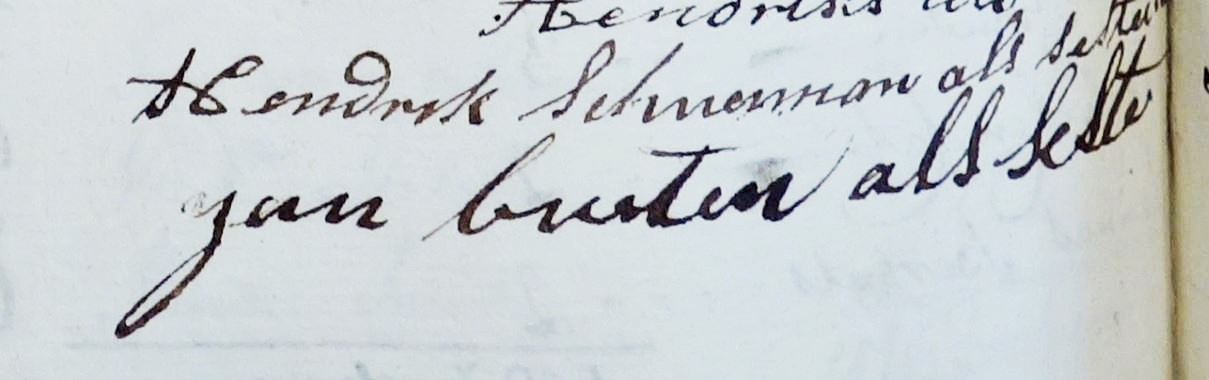 Hendriks als
Hendrik Schuerman als sette
jan buiten als sette